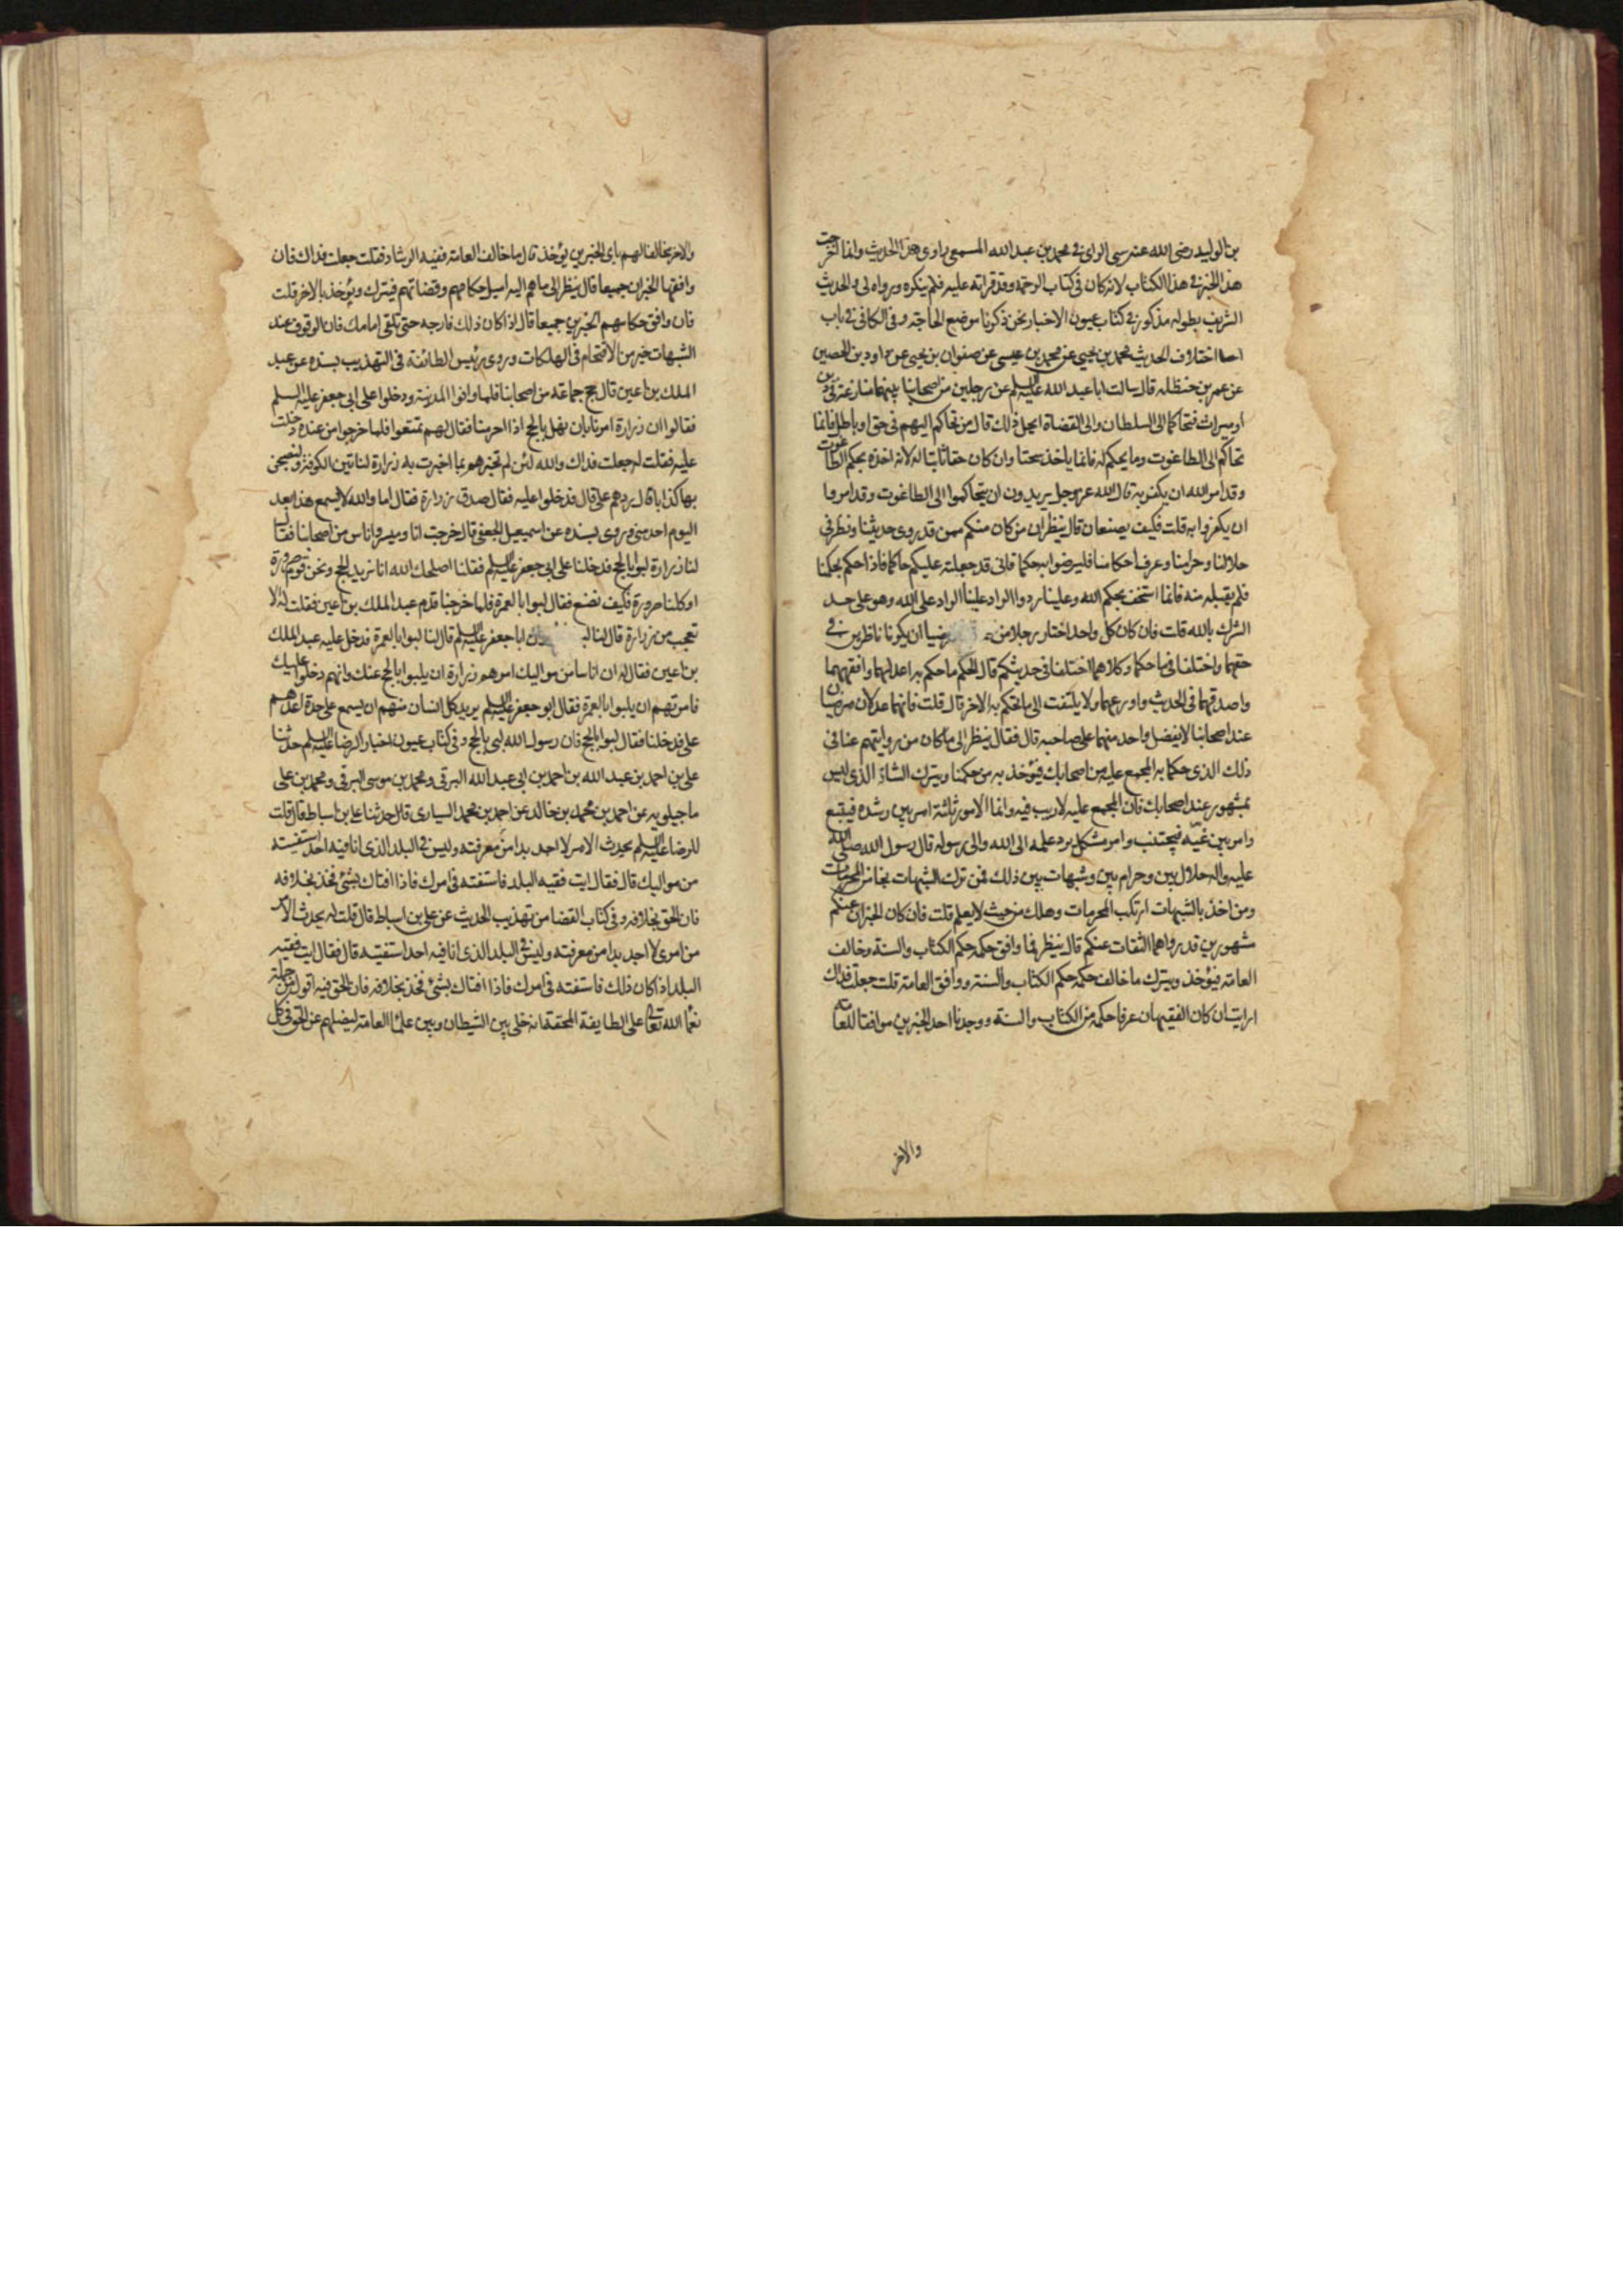 بن الوليد رضى الله عنه سىء الراى فى محمد بن عبد الله المسمعى راوى هذا الحديث وانما اخرجت
هذا الخبر فى هذا الكتاب لانه كان فى كتاب الرحمة وقد قراته عليه فلم ينكره ورواه لى والحديث
الشريف بطوله مذكور فى كتاب عيون الاخبار نحن ذكرنا موضع الحاجة وفى الكافى فى باب
اختلاف الحديث محمد بن يحيى عن محمد بن عيسى عن صفوان بن يحيى عن داود بن الحصين
عن عمر بن حنظله قال سالت ابا عبد الله عليه السلم عن رجلين من اصحابنا بينهما منازعة فى دين
او ميراث فتحاكما الى السلطان والى القضاة ايحل ذلك قال من تحاكم اليهم فى حق او باطل فانما
تحاكم الى الطاغوت وما يحكم له فانما ياخذ سحتا وان كان حقا ثابتا له لانه اخذه بحكم الطاغوت
وقد امر الله ان يكفر به قال الله عز وجل يريدون ان يتحاكموا الى الطاغوت وقد امروا
ان يكفروا به قلت فكيف يصنعان قال ينظران من كان منكم ممن قد روى حديثنا ونظر فى
حلالنا وحرامنا وعرف احكامنا فليرضوا به حكما فانى قد جعلته عليكم حاكما فاذا حكم بحكمنا
فلم يقبله منه فانما استخف بحكم الله وعلينا رد والراد علينا الراد على الله وهو على حد
الشرك بالله قلت فان كان كل واحد اختار رجلا من فرضيا ان يكونا ناظرين فى
حقهما واختلفا فيما حكما وكلاهما اختلفا فى حديثكم قال الحكم ما حكم به اعدلهما وافقههما
واصدقهما فى الحديث واورعهما ولا يلتفت الى ما يحكم به الاخر قال قلت فانهما عدلان مرضيان
عند اصحابنا لا يفضل واحد منهما على صاحبه قال فقال ينظر الى ما كان من روايتهم عنا فى
ذلك الذى حكما به المجمع عليه من اصحابك فيؤخذ به من حكمنا ويترك الشاذ الذى ليس
بمشهور عند اصحابك فان المجمع عليه لا ريب فيه وانما الامور ثلثة امر بين رشده فيتبع
وامر بين غيه فيجتنب وامر مشكل يرد علمه الى الله والى رسوله قال رسول الله صلى الله
عليه واله حلال بين وحرام بين وشبهات بين ذلك فمن ترك الشبهات نجا من المحرمات
ومن اخذ بالشبهات ارتكب المحرمات وهلك من حيث لا يعلم قلت فان كان الخبران عنكم
مشهورين قد رواهما الثقات عنكم قال ينظر فما وافق حكمه حكم الكتاب والسنة وخالف
العامة فيؤخذ ويترك ما خالف حكمه حكم الكتاب والسنة ووافق العامة قلت جعلت فداك
ارايت ان كان الفقيهان عرفا حكمه من الكتاب والسنة ووجدنا احد الخبرين موافقا للعامة
والاخر
والاخر مخالفا لهم باى الخبرين يؤخذ قال ما خالف العامة ففيه الرشاد فقلت جعلت فداك فان
وافقها الخبران جميعا قال ينظر الى ما هم اليه اميل حكامهم وقضاتهم فيترك ويؤخذ بالاخر قلت
فان وافق حكامهم الخبرين جميعا قال اذا كان ذلك فارجه حتى تلقى امامك فان الوقوف عند
الشبهات خير من الاقتحام فى الهلكات وروى رئيس الطائفة فى التهذيب بسنده عن عبد
الملك بن اعين قال حج جماعة من اصحابنا فلما وافوا المدينة ودخلوا على ابى جعفر عليه السلم
فقالوا ان زرارة امرنا بان نهل بالحج اذا احرمنا فقال لهم تمتعوا فلما خرجوا من عنده دخلت
عليه فقلت له جعلت فداك والله لئن لم تخبرهم بما اخبرت به زرارة لناتين الكوفة ولنصبحن
بها كذابا قال ردهم على قال فدخلوا عليه فقال صدق زرارة فقال اما والله لا يسمع هذا بعد
اليوم احد منى وروى بسنده عن اسمعيل الجعفى قال خرجت انا وميسر واناس من اصحابنا فقال
لنا زرارة لبوا بالحج فدخلنا على ابى جعفر عليه السلم فقلنا اصلحك الله انا نريد الحج ونحن قوم صرورة
او كلنا صرورة فكيف نصنع فقال لبوا بالعمرة فلما خرجنا قدم عبد الملك بن اعين فقلت له الا
تعجب من زرارة قال لنا ابا جعفر عليه السلم قال لنا لبوا بالعمرة فدخل عليه عبد الملك
بن اعين فقال له ان اناسا من مواليك امرهم زرارة ان يلبوا بالحج عنك وانهم دخلوا عليك
فامرتهم ان يلبوا بالعمرة فقال ابو جعفر عليه السلم يريد كل انسان منهم ان يسمع على حدة اعدهم
على فدخلنا فقال لبوا بالحج فان رسول الله لبى بالحج وفى كتاب عيون اخبار الرضا عليه السلم حدثنا
على بن احمد بن عبد الله بن احمد بن ابى عبد الله البرقى ومحمد بن موسى البرقى ومحمد بن على
ماجيلويه عن احمد بن محمد بن خالد عن احمد بن محمد السيارى قال حدثنا على بن اسباط قال قلت
للرضا عليه السلم يحدث الامر لا اجد بدا من معرفته وليس فى البلد الذى انا فيه احد استفتيه
من مواليك قال فقال ايت فقيه البلد فاستفته فى امرك فاذا افتاك بشئ فخذ بخلافه
فان الحق بخلافه وفى كتاب القضا من تهذيب الحديث عن على بن اسباط قال قلت له يحدث الامر
من امرى لا اجد بدا من معرفته وليس فى البلد الذى انا فيه احد استفتيه قال فقال ايت فقيه
البلد اذا كان ذلك فاستفته فى امرك فاذا افتاك بشئ فخذ بخلافه فان الحق فيه اقول من جملة
نعما الله تعالى على الطايفة المحقة انه خلى بين الشيطان وبين علما العامة ليضلهم عن الحق فى كل